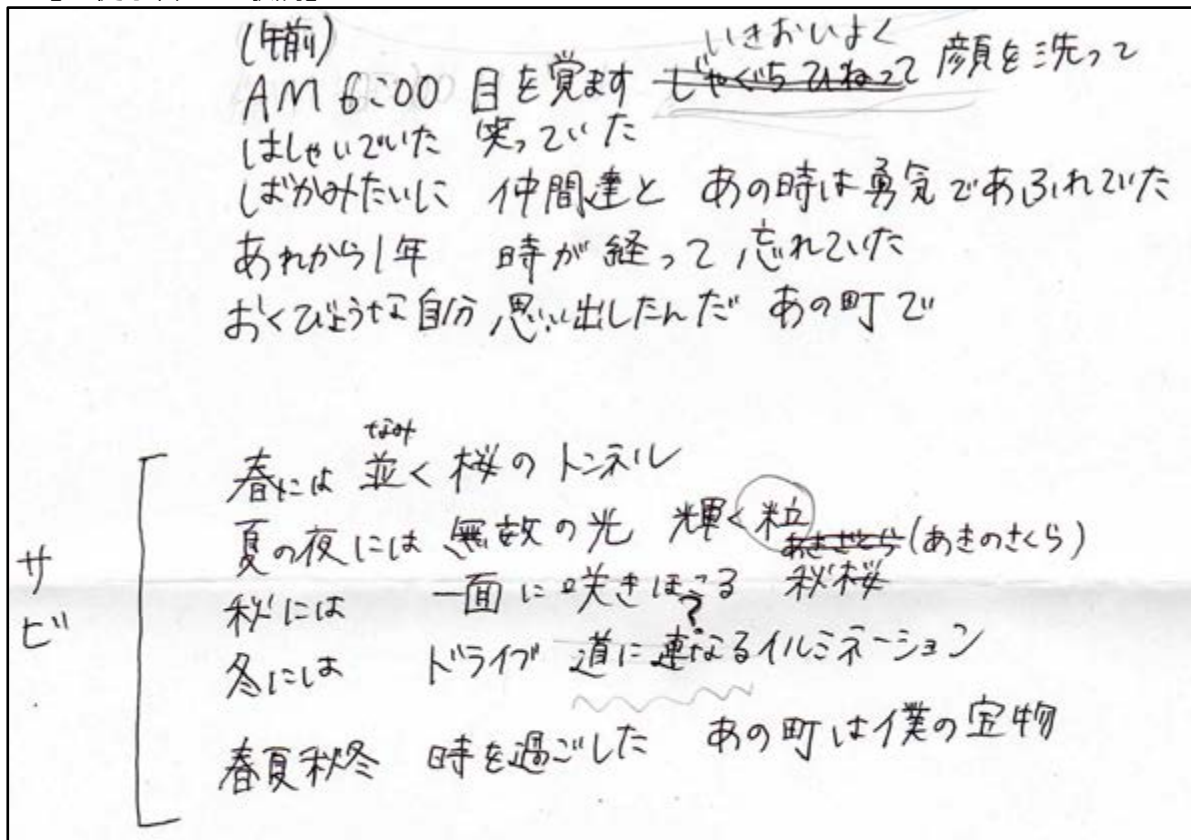 (午前)
いきおいよく
AM 6:00 目を覚ます じゃぐちひねって 顔を洗って
はしゃいでいた 笑っていた
ばかみたいに 仲間達と あの時は勇気であふれていた
あれから1年 時が経って 忘れていた
おくびょうな自分 思い出したんだ あの町で
なみ
春には 並く桜のトンネル
夏の夜には 無数の光 輝く粒
あきざくら (あきのさくら)
秋には 一面に咲きほこる 秋桜
?
冬には ドライブ 道に連なるイルミネーション
春夏秋冬 時を過ごした あの町は僕の宝物
サビ